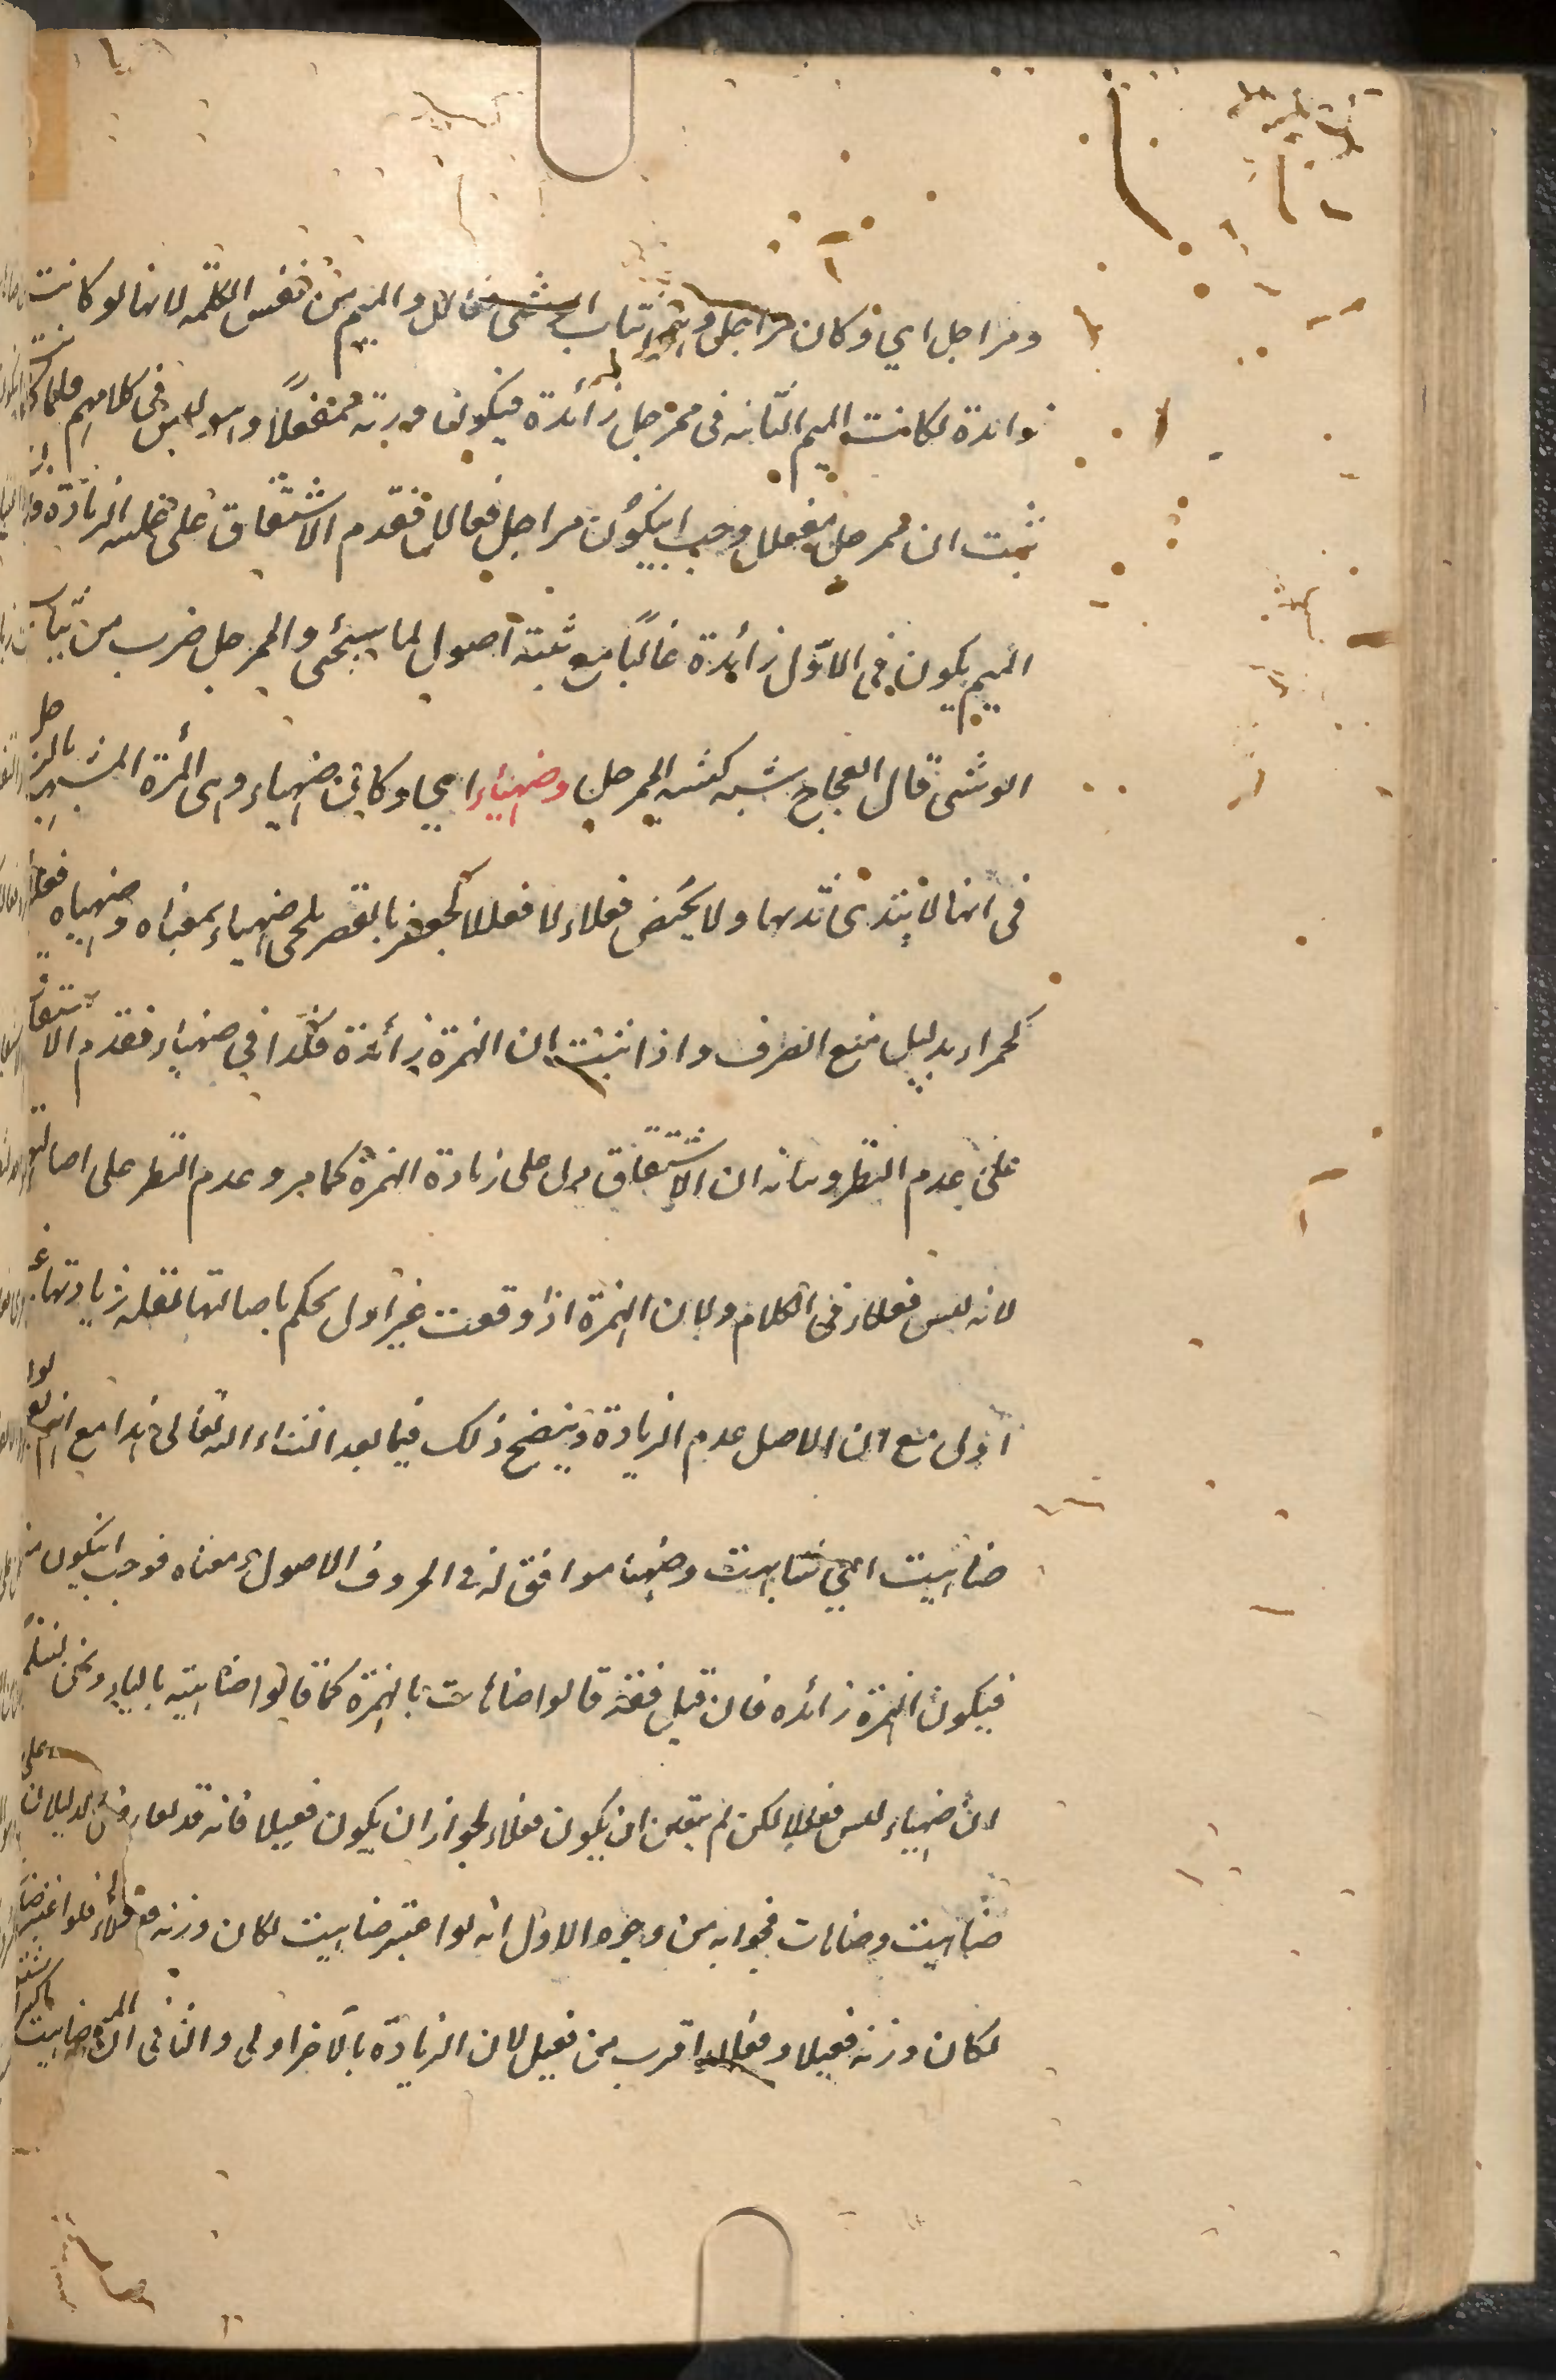 ومراجل اي وكان مراجل وهي ثياب الوشى فعالل والميم من نفس الكلمه لانها لو كانت
زائدة لكانت الميم الثانيه فى ممرجل زأئدة فيكون وزنه ممفعلًا وهو ليس فى كلامهم فلما
ثبت ان ممرجل مفعلل وجب انيكون مراجل فعالل فقدم الاشتقاق على غلبه الزيادة
الميم يكون فى الاوّل زأئدة غالبًا مع ثلثة اصول لما سيجئى والممرجل ضرب من ثياب
الوشى قال العجاج بشيه كشيه الممرجل وضهياء اي وكان ضهياء وهى المرأة المشبهه بالرجل
فى انها لا يتدى ثديها ولا يحيض فعلاء لا فعللا كجعفر بالقصر لمجى ضهياء بمعناه وضهياء فعلاء
كحمراء بدليل منع الصرف واذا ثبت ان الهمزة زأئدة فكذا في ضهياء فقدم الاشتقاق
على عدم النظير وبيانه ان الاشتقاق يدل على زيادة الهمزة كما مر وعدم النظير على اصالتها
لانه ليس فعلاء فى الكلام ولان الهمزة اذا وقعت غير اول يحكم باصالتها لقله زيادتها
اولى مع ان الاصل عدم الزيادة ويتضح ذلك فيما بعد انشاء الله تعالى هذا مع انهم قالوا
ضاهيت اى شابهت وضهيا موافق له فى الحروف الاصول ومعناه فوجب انيكون
فيكون الهمزة زائده فان قيل فقد قالوا ضاهات بالهمزة كما قالوا ضاهيته بالياء ونحن نسلم
ان ضهياء ليس فعللا لكن لم يتعين ان يكون فعلاء لجواز ان يكون فعيلا فانه قد تعارض الدليلان
ضاهيت وضاهات فجوابه من وجوه الاول انه لو اعتبر ضاهيت لكان وزنه فعلاء فلو اعتبر
لكان وزنه فعيلا وفعلاء اقرب من فعيل لان الزيادة بالآخر اولى والثانى ان ضاهيت